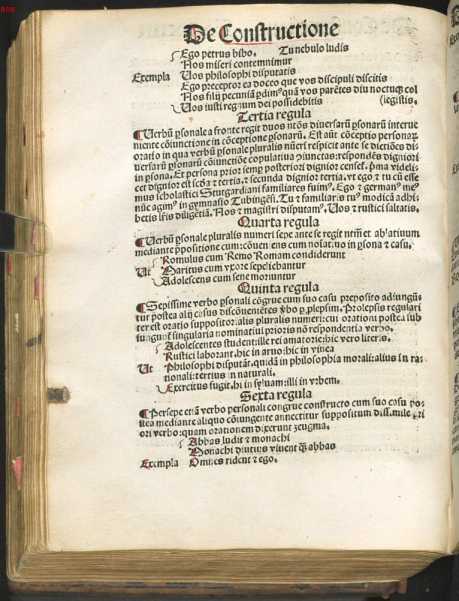 De Constructione
Ego petrus bibo. Tu nebulo ludis
Nos miseri contemnimur
Exempla Uos philosophi disputatis
Ego preceptor ea doceo que vos discipuli discitis
Nos filij pecuniā ꝑdimꝰ quā vos parētes diu noctuqꝫ col
Uos iusti regnum dei possidebitis (legistis.
Tertia regula
Uerbū ꝑsonale a fronte regit duos nt̄os diuersaꝝ ꝑsonaꝝ interue
niente cōiunctione in cōceptione ꝑsonaꝝ. Est aūt cōceptio personaꝝ
oratio in qua verbū ꝑsonale pluralis nūeri respicit ante se dictiōes di
uersaꝝ ꝑsonaꝝ cōiunctiōe copulatiua
in ꝑsona. Et persona prior semꝑ posteriori dignior censet᷑.
cet dignior est scḋa ⁊ tertia. ⁊ secunda dignior tertia. vt ego ⁊ tu cū esse
mus scholastici Stutgardiani familiares fuimꝰ. Ego ⁊ germanꝰ meꝰ
nūc agimꝰ in gymnasio Tubingēsi. Tu ⁊ familiaris tuꝰ modicā adhi
betis lr̄is diligētiā. Nos ⁊ magistri disputamꝰ. Uos ⁊ rustici saltatis.
Quarta regula
Uerbū ꝑsonale pluralis numeri sepe ante se regit nt̄m et ablatiuum
mediante ꝓpositione cum: cōueniens cum
Romulus cum Remo Romam condiderunt
Ut Maritus cum vxore sepe
Adolescens cum sene moriuntur
Quinta regula
Sepissime verbo ꝑsonali cōgrue cum suo casu preposito adiungū
tur postea alij casus discōuenientes ꝟbo ꝑ ꝓlepsim. Prolepsis regulari
ter est oratio suppositor alis pluralis numeri: cui orationi postea sub
iungunt᷑ singularia nominatiui prioris nō respondentia verbo.
Adolescentes student: ille rei amatorie: hic vero literis.
Rustici laborant. hic in aruo: hic in vinea
Ut Philosophi disputāt. quidā in philosophia morali: alius in ra
tionali: tertius in naturali.
Exercitus fugit. hi in syluam: illi in vrbem.
Sexta regula
Persepe etiā verbo personali congrue constructo cum suo casu po
stea mediante aliquo cōiungente annectitur suppositum dissimile
ori verbo: quam orationem dixerunt zeugma.
Abbas ludit ⁊ monachi
Monachi diutius viuent qͣ̄ abbas
Exempla Omnes rident ⁊ ego.